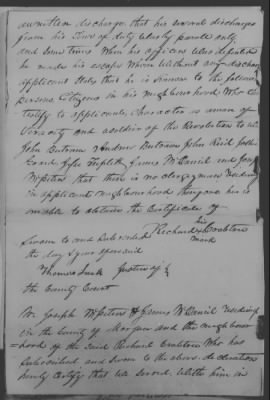 a written discharge, that his several discharges
from his Tour of duty was by parole only
and some times When his officers Was defeated
he made his escape Where Without any discharge
applicant states that he is known to the following
persons Citizens in his neighbourhood Who can
testify to applicants Character as a man of
Veracity and a soldier of the Revolution to wit
John Butram Andrew Butram John Reid
James McDaniel and Joseph
that there is no clergyman residing
in applicants neighbourhood therefore he is
unable to obtain the Certificate of
his
Sworn to and Subscribed Richard Crabtree
the day & year aforesaid mark
Thomas Justice of
the County Court
We Joseph & James McDaniel residing
in the County of Morgan and the neighbour
=hood of the said Richard Crabtree Who has
Subscribed and Sworn to the above declaration
hereby Certify that we Served With him in